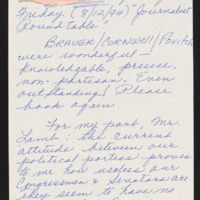 Friday (8/12/94) "Journalist
Roundtable"
BRAVER/CORNWELL/POVICH
were wonderful —
knowledgable, precise,
non-partisan. Even
outstanding! Please
book again.
For my part, Mr.
Lamb: the current
attitude between our
political parties proves
to me how useless our
Congressmen & Senators are
they seem to have no